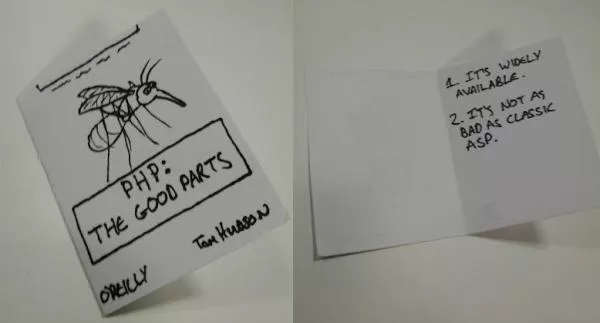 PHP:
THE GOOD PARTS
TOM HUDSON
O'REILLY
1. IT'S WIDELY
AVAILABLE.
2. IT'S NOT AS
BAD AS CLASSIC
ASP.